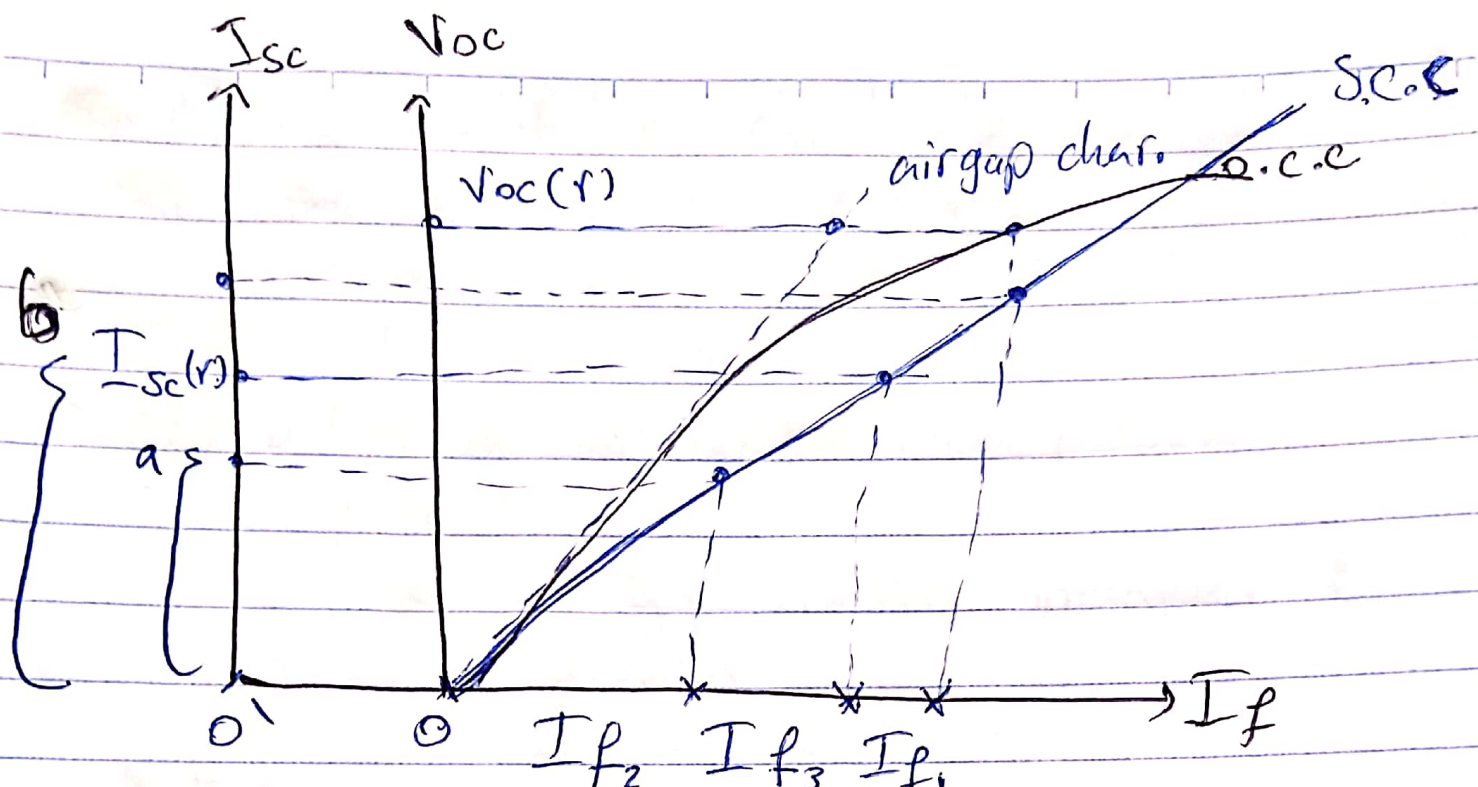 Isc Voc
S.C.C
airgap char.
O.C.C
Voc(r)
b
Isc(r)
a
O' O If₂ If₃ If₁ If